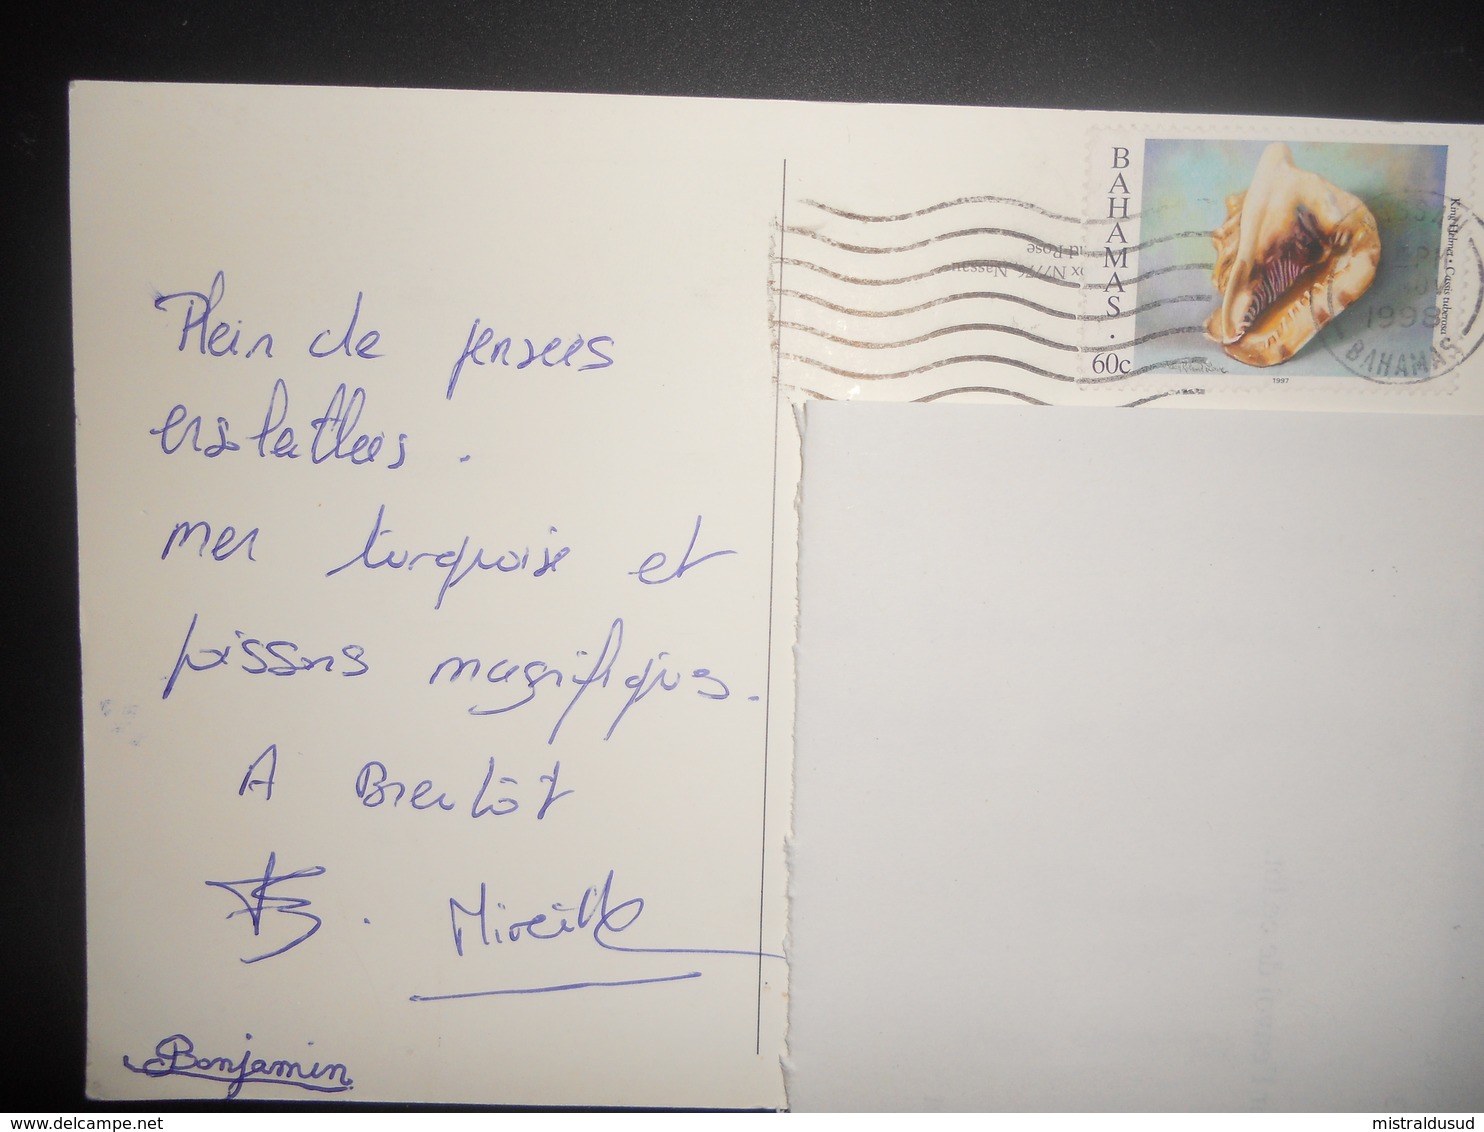 Plein de pensees
ensoleillees.
mer turquoise et
poissons magnifiques.
A Bientôt
Mireille
Benjamin
BAHAMAS.
60c
King Helmet • Cassis tuberosa
1997
1998
BAHAMAS
ox N7776 Nassau
nd Rose
mistraldusud